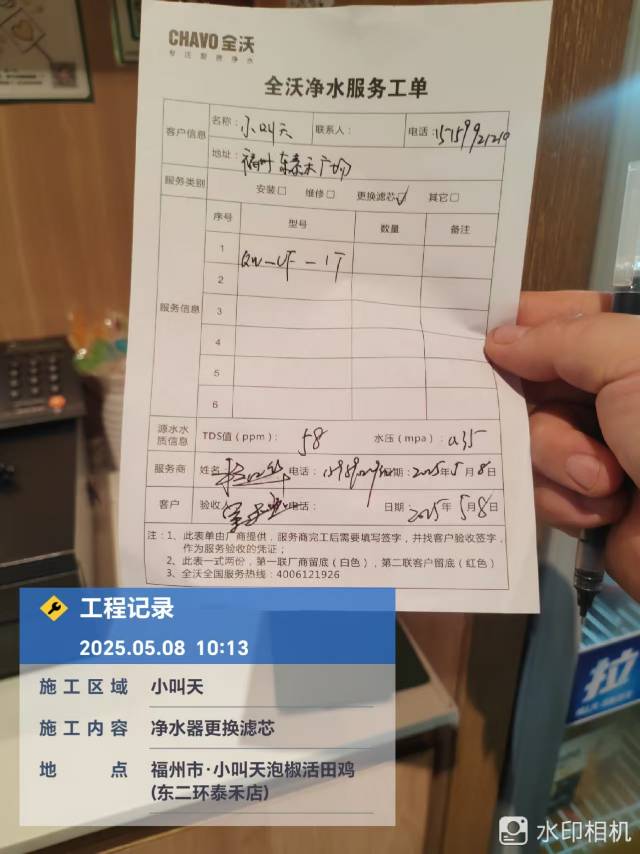 CHAVO 全沃
专注智能净水
全沃净水服务工单
客户信息
名称：小叫天 联系人： 电话：15159921210
地址：福州东泰禾广场
服务类别 安装□ 维修□ 更换滤芯☑ 其它□
服务信息
序号 型号 数量 备注
1
QW-UF-1T
2
3
4
5
6
源水水质信息 TDS值（ppm）：58 水压（mpa）：0.35
服务商 姓名 电话： 日期：2025年5月8日
客户 验收人 电话： 日期：2025年5月8日
注：1、此表单由厂商提供，服务商完工后需要填写签字，并找客户验收签字，
作为服务验收的凭证；
2、此表一式两份，第一联厂商留底（白色），第二联客户留底（红色）
3、全沃全国服务热线：4006121926
工程记录
2025.05.08 10:13
施工区域 小叫天
施工内容 净水器更换滤芯
地点 福州市·小叫天泡椒活田鸡
(东二环泰禾店)
拉
水印相机